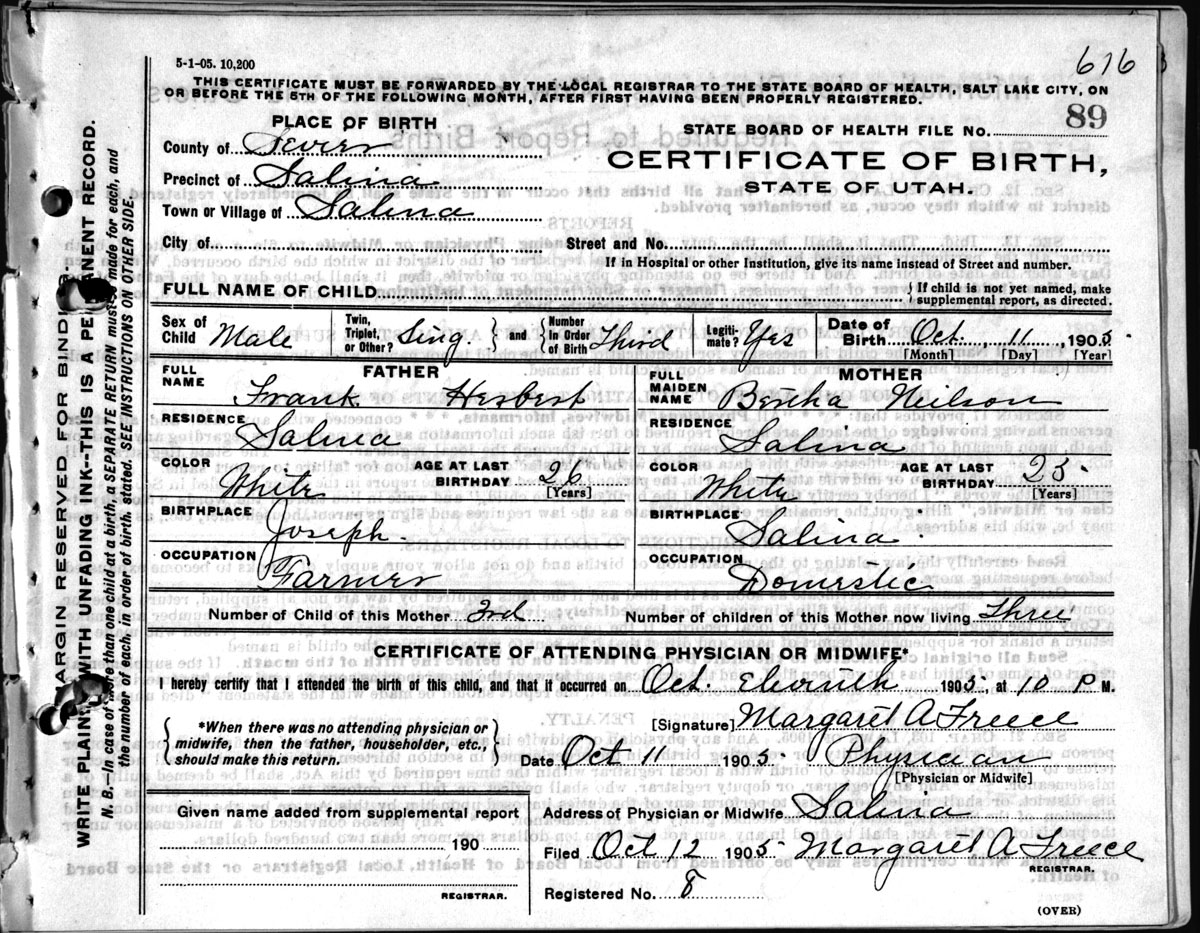 616
5-1-05. 10,200
THIS CERTIFICATE MUST BE FORWARDED BY THE LOCAL REGISTRAR TO THE STATE BOARD OF HEALTH, SALT LAKE CITY, ON
OR BEFORE THE 5TH OF THE FOLLOWING MONTH, AFTER FIRST HAVING BEEN PROPERLY REGISTERED.
PLACE OF BIRTH
STATE BOARD OF HEALTH FILE NO. 89
County of Sevier
CERTIFICATE OF BIRTH,
Precinct of Salina
STATE OF UTAH.
Town or Village of Salina
City of Street and No.
If in Hospital or other Institution, give its name instead of Street and number.
FULL NAME OF CHILD { If child is not yet named, make
supplemental report, as directed.
Sex of Child Male Twin, Triplet, or Other? Sing. } and { Number In Order of Birth Third Legiti-mate? Yes Date of Birth Oct. 11, 1905
[Month] [Day] [Year]
FATHER MOTHER
FULL NAME Frank Herbert FULL MAIDEN NAME Bertha Neilson
RESIDENCE Salina RESIDENCE Salina
COLOR White AGE AT LAST BIRTHDAY 26 [Years] COLOR White AGE AT LAST BIRTHDAY 25 [Years]
BIRTHPLACE Joseph. BIRTHPLACE Salina
OCCUPATION Farmer OCCUPATION Domestic
Number of Child of this Mother 3rd Number of children of this Mother now living Three
CERTIFICATE OF ATTENDING PHYSICIAN OR MIDWIFE*
I hereby certify that I attended the birth of this child, and that it occurred on Oct. Eleventh 1905, at 10 P M.
{ *When there was no attending physician or
midwife, then the father, householder, etc.,
should make this return. }
[Signature] Margaret A Freece
Date Oct 11 1905 Physician
[Physician or Midwife]
Given name added from supplemental report
Address of Physician or Midwife Salina
190
Filed Oct 12 1905 Margaret A Freece
REGISTRAR.
REGISTRAR.
Registered No. 8
(OVER)
MARGIN RESERVED FOR BINDING.
WRITE PLAINLY WITH UNFADING INK--THIS IS A PERMANENT RECORD.
N. B.—In case of more than one child at a birth, a SEPARATE RETURN must be made for each, and
the number of each, in order of birth, stated. SEE INSTRUCTIONS ON OTHER SIDE.